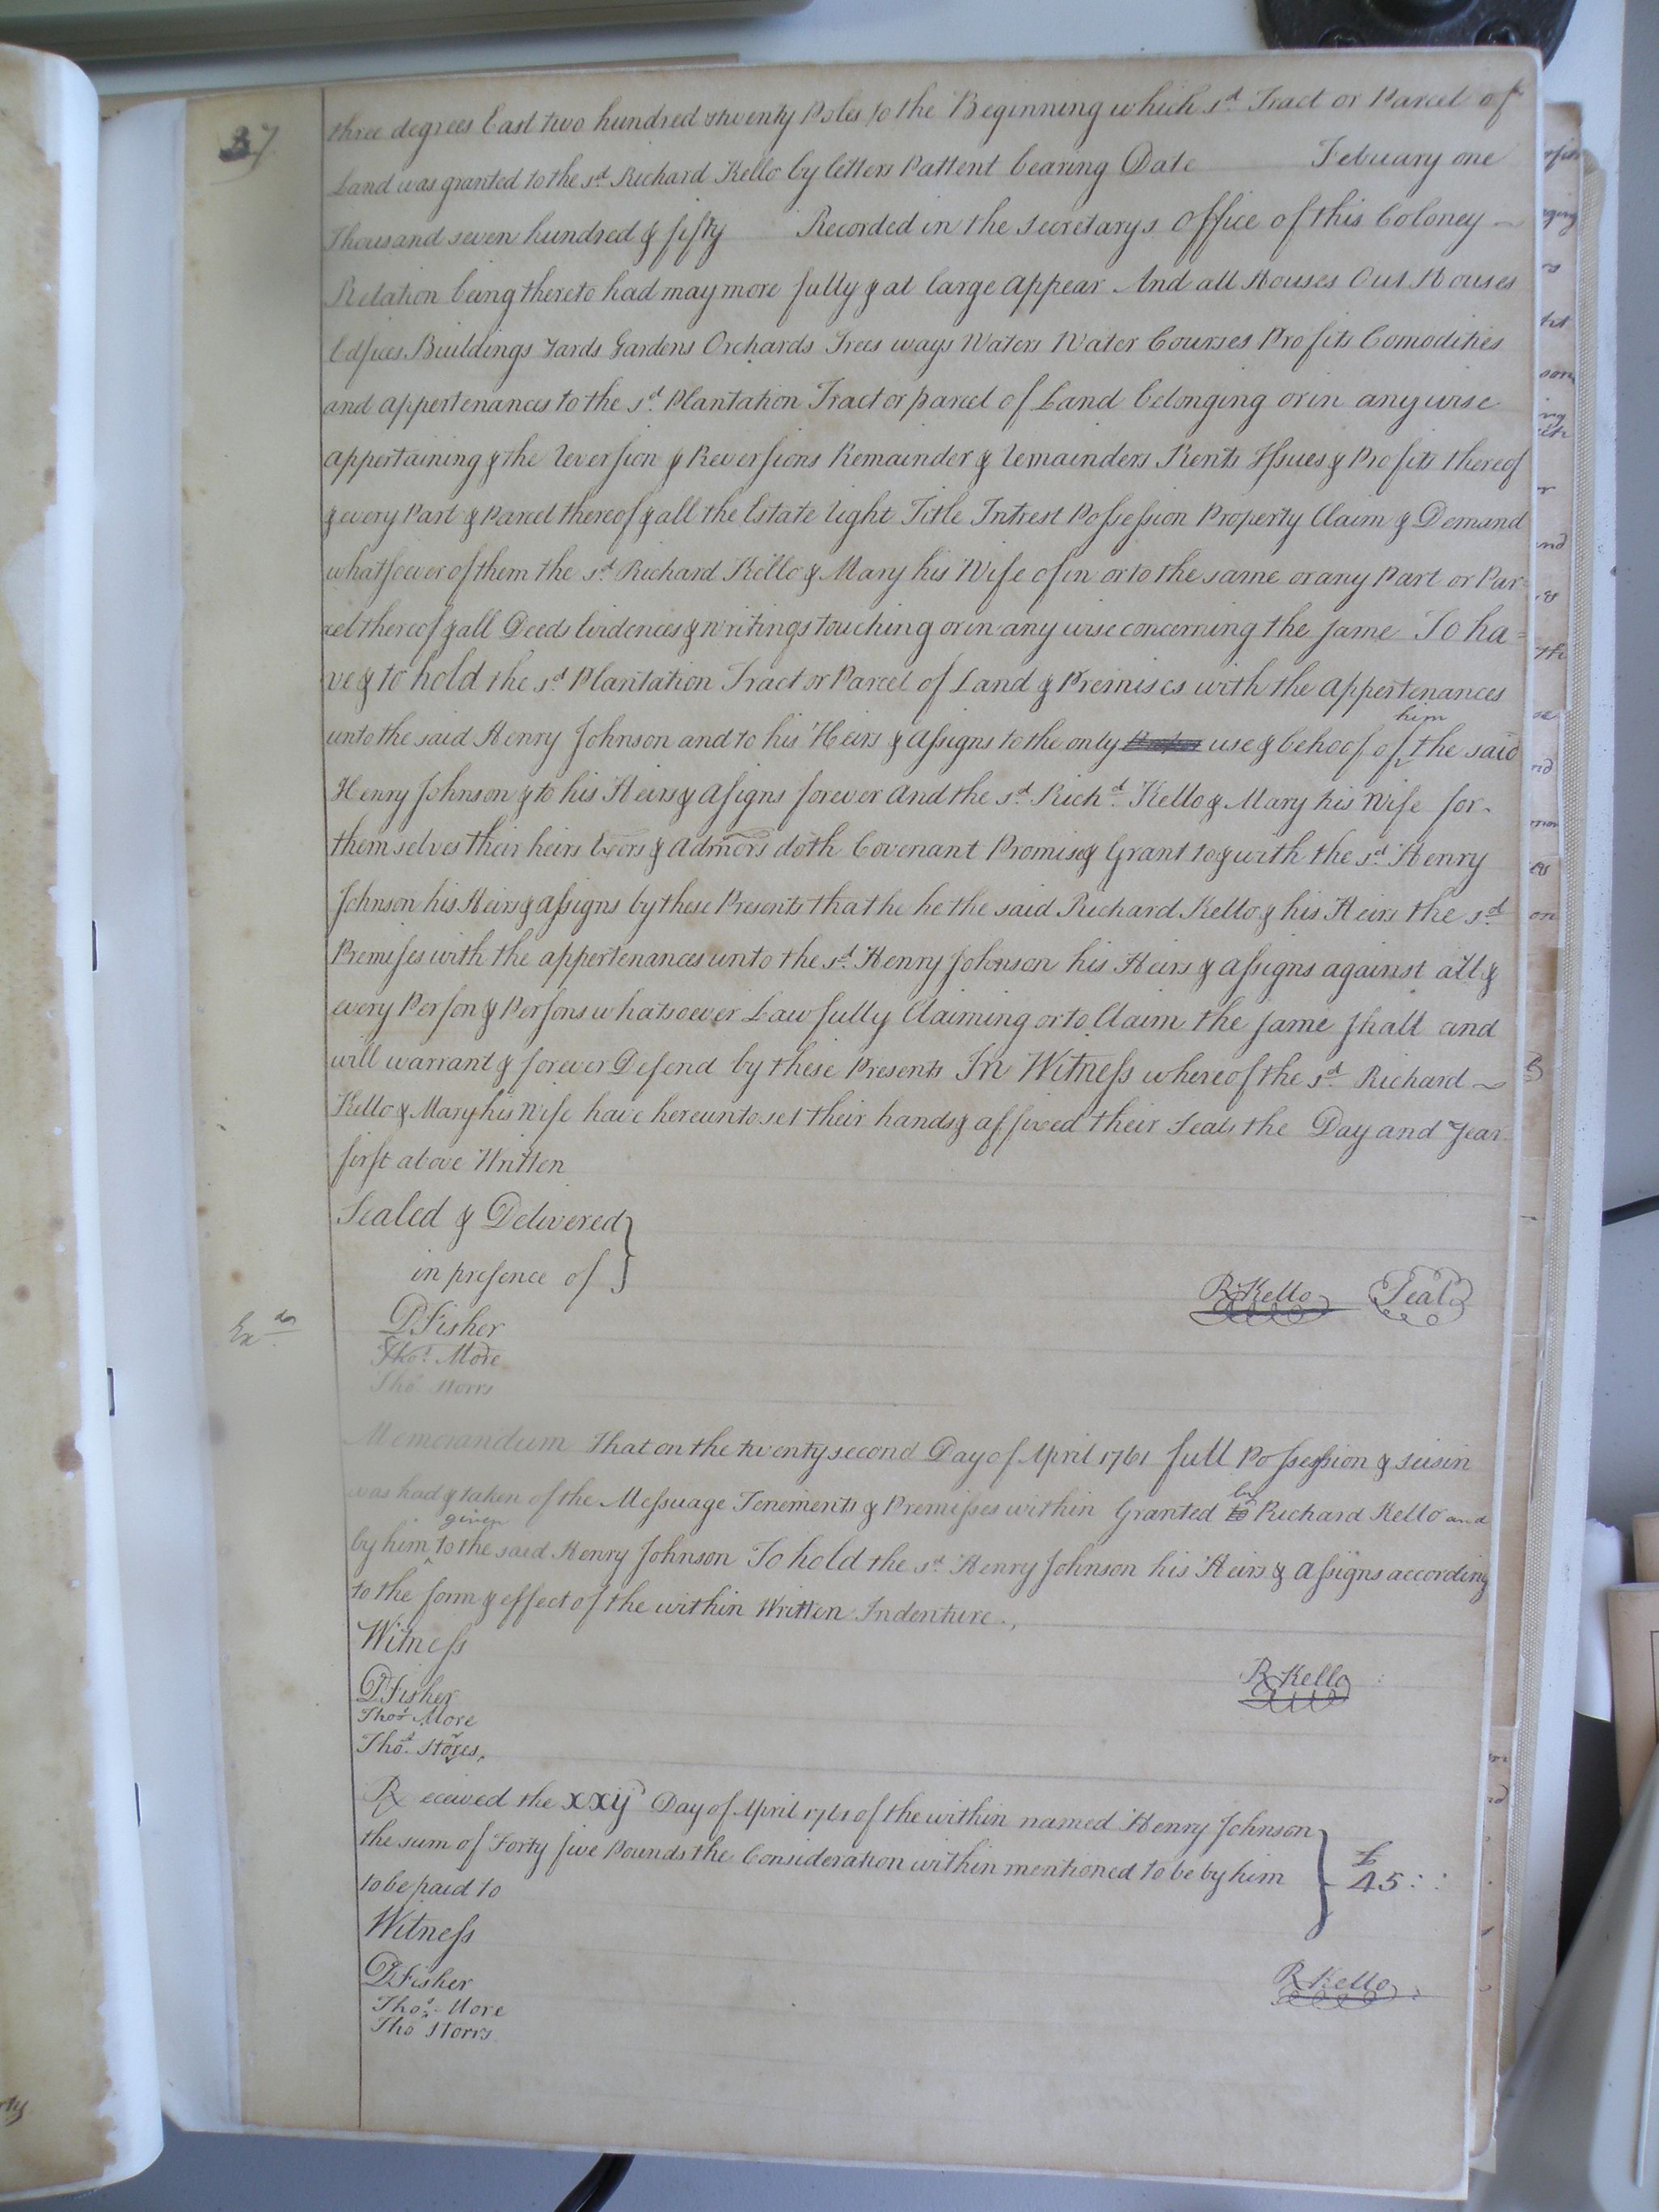 37
three degrees East two hundred & twenty Poles to the Beginning which sd. Tract or Parcel of
Land was granted to the sd. Richard Kello by letters Pattent bearing Date February one
Thousand seven hundred & fifty Recorded in the Secretarys Office of this Coloney
Relation being thereto had may more fully & at large appear And all Houses Out Houses
Edifices Buildings Yards Gardens Orchards Trees ways Waters Water Courses Profits Comodities
and appertenances to the sd. Plantation Tract or parcel of Land belonging or in any wise
appertaining & the reversion & Reversions Remainder & remainders Rents Issues & Profits thereof
& every Part & Parcel thereof & all the Estate right Title Intrest Possession Property Claim & Demand
whatsoever of them the sd. Richard Kello & Mary his Wife of in or to the same or any Part or Par=
cel thereof & all Deeds Evidences & writings touching or in any wise concerning the same To ha=
ve & to hold the sd. Plantation Tract or Parcel of Land & Premises with the appertenances
unto the said Henry Johnson and to his Heirs & assigns to the only use & behoof of him the said
Henry Johnson & to his Heirs & asigns forever and the sd. Richd. Kello & Mary his Wife for
themselves their heirs Exors & admors doth Covenant Promise & Grant to & with the sd. Henry
Johnson his Heirs & assigns by these Presents that he he the said Richard Kello & his Heirs the sd.
Premises with the appertenances unto the sd. Henry Johnson his Heirs & assigns against all &
every Person & Persons whatsoever Lawfully Claiming or to Claim the same shall and
will warrant & forever Defend by these Presents In Witness whereof the sd. Richard
Kello & Mary his Wife have hereunto set their hands & affixed their Seals the Day and Year
first above Written
Sealed & Delivered
in presence of
R Kello Seal
Exd.
D. Fisher
Thos. More
Tho Storrs
Memorandum That on the twenty second Day of April 1761 full Possession & seisin
was had & taken of the Messuage Tenements & Premisses within Granted by Richard Kello and
by him given to the said Henry Johnson To hold the sd. Henry Johnson his Heirs & assigns according
to the form & effect of the within Written Indenture.
Witness
R Kello
D. Fisher
Thos. More
Thos. Storrs
Received the xxij Day of April 1761 of the within named Henry Johnson
the sum of Forty five Pounds the Consideration within mentioned to be by him
£ 45
to be paid to
Witness
D. Fisher
R Kello
Thos. More
Tho Storrs